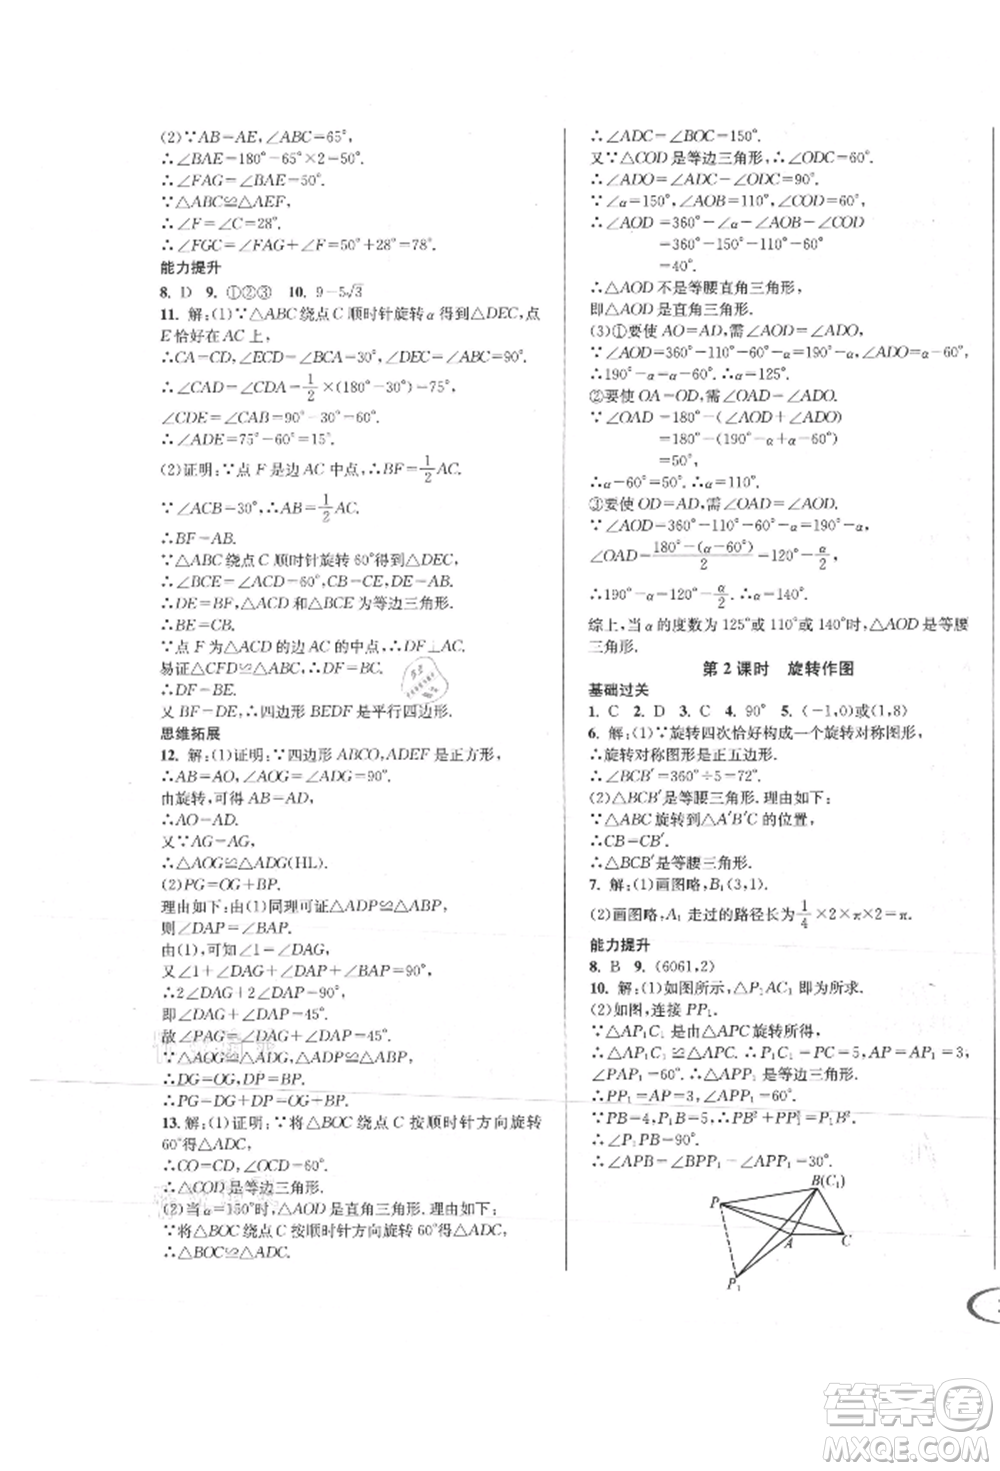 (2)∵AB=AE,∠ABC=65°,
∴∠BAE=180°-65°×2=50°.
∴∠FAG=∠BAE=50°.
∵△ABC≌△AEF,
∴∠F=∠C=28°.
∴∠FGC=∠FAG+∠F=50°+28°=78°.
能力提升
8. D 9. ①②③ 10. 9-5√3
11. 解:(1)∵△ABC绕点C顺时针旋转α得到△DEC,点
E恰好在AC上,
∴CA=CD,∠ECD=∠BCA=30°,∠DEC=∠ABC=90°.
∴∠CAD=∠CDA=1/2×(180°-30°)=75°,
∠CDE=∠CAB=90°-30°=60°.
∴∠ADE=75°-60°=15°.
(2)证明:∵点F是边AC中点,∴BF=1/2AC.
∵∠ACB=30°,∴AB=1/2AC.
∴BF=AB.
∵△ABC绕点C顺时针旋转60°得到△DEC,
∴∠BCE=∠ACD=60°,CB=CE,DE=AB.
∴DE=BF,△ACD和△BCE为等边三角形.
∴BE=CB.
∵点F为△ACD的边AC的中点,∴DF⊥AC.
易证△CFD≌△ABC,∴DF=BC.
∴DF=BE.
又∵BF=DE,∴四边形BEDF是平行四边形.
思维拓展
12. 解:(1)证明:∵四边形ABCO,ADEF是正方形,
∴AB=AO,∠AOG=∠ADG=90°.
由旋转,可得AB=AD,
∴AO=AD.
又∵AG=AG,
∴△AOG≌△ADG(HL).
(2)PG=OG+BP.
理由如下:由(1)同理可证△ADP≌△ABP,
则∠DAP=∠BAP.
由(1),可知∠1=∠DAG,
又∠1+∠DAG+∠DAP+∠BAP=90°,
∴2∠DAG+2∠DAP=90°,
即∠DAG+∠DAP=45°.
故∠PAG=∠DAG+∠DAP=45°.
∵△AOG≌△ADG,△ADP≌△ABP,
∴DG=OG,DP=BP.
∴PG=DG+DP=OG+BP.
13. 解:(1)证明:∵将△BOC绕点C按顺时针方向旋转
60°得△ADC,
∴CO=CD,∠OCD=60°.
∴△COD是等边三角形.
(2)当α=150°时,△AOD是直角三角形.
∵将△BOC绕点C按顺时针方向旋转60°得△ADC,
∴△BOC≌△ADC,
∴∠ADC=∠BOC=150°.
又∵△COD是等边三角形,∴∠ODC=60°.
∴∠ADO=∠ADC-∠ODC=90°.
∵∠α=150°,∠AOB=110°,∠COD=60°,
∴∠AOD=360°-∠α-∠AOB-∠COD
=360°-150°-110°-60°
=40°.
∴△AOD不是等腰直角三角形,
即△AOD是直角三角形.
(3)①要使AO=AD,需∠AOD=∠ADO.
∵∠AOD=360°-110°-60°-α=190°-α,∠ADO=α-60°,
∴190°-α=α-60°.∴α=125°.
②要使OA=OD,需∠OAD=∠ADO.
∵∠OAD=180°-(∠AOD+∠ADO)
=180°-(190°-α+α-60°)
=50°,
∴α-60°=50°.∴α=110°.
③要使OD=AD,需∠OAD=∠AOD.
∵∠AOD=360°-110°-60°-α=190°-α,
∠OAD=(180°-(α-60°))/2=120°-α/2,
∴190°-α=120°-α/2.∴α=140°.
综上,当α的度数为125°或110°或140°时,△AOD是等腰
三角形.
第2课时 旋转作图
基础过关
1. C 2. D 3. C 4. 90° 5. (-1,0)或(1,8)
6. 解:(1)∵旋转四次恰好构成一个旋转对称图形,
∴旋转对称图形是正五边形.
∴∠BCB′=360°÷5=72°.
(2)△BCB′是等腰三角形.理由如下:
∵△ABC旋转到△A′B′C的位置,
∴CB=CB′.
∴△BCB′是等腰三角形.
7. 解:(1)画图略,B₁(3,1).
(2)画图略,A₁走过的路径长为1/4×2×π×2=π.
能力提升
8. B 9. (6061,2)
10. 解:(1)如图所示,△P₁AC₁即为所求.
(2)如图,连接PP₁.
∵△AP₁C₁是由△APC旋转所得,
∴△AP₁C₁≌△APC.∴P₁C₁=PC=5,AP=AP₁=3,
∠PAP₁=60°.∴△APP₁是等边三角形.
∴PP₁=AP=3,∠APP₁=60°.
∵PB=4,P₁B=5,∴PB²+PP₁²=P₁B².
∴∠P₁PB=90°.
∴∠APB=∠BPP₁-∠APP₁=30°.
B(C₁)
P
A
C
P₁
答案卷
MXQE.COM